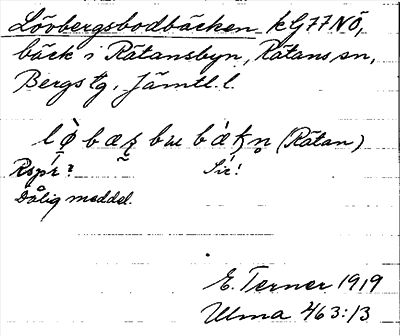 Lövbergsbodbäcken kG77NÖ,
bäck i Rätansbyn, Rätans sn,
Bergs tg, Jämtl. l.
(Rätan)
Rspr? Sic!
Dålig meddel.
E. Terner 1919
Ulma 463:13